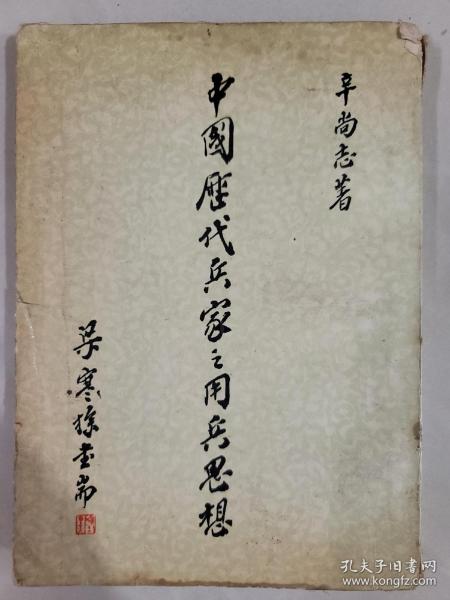 辛尚志著
中國歷代兵家之用兵思想
梁寒操書耑
孔夫子旧书网
www.kongfz.com